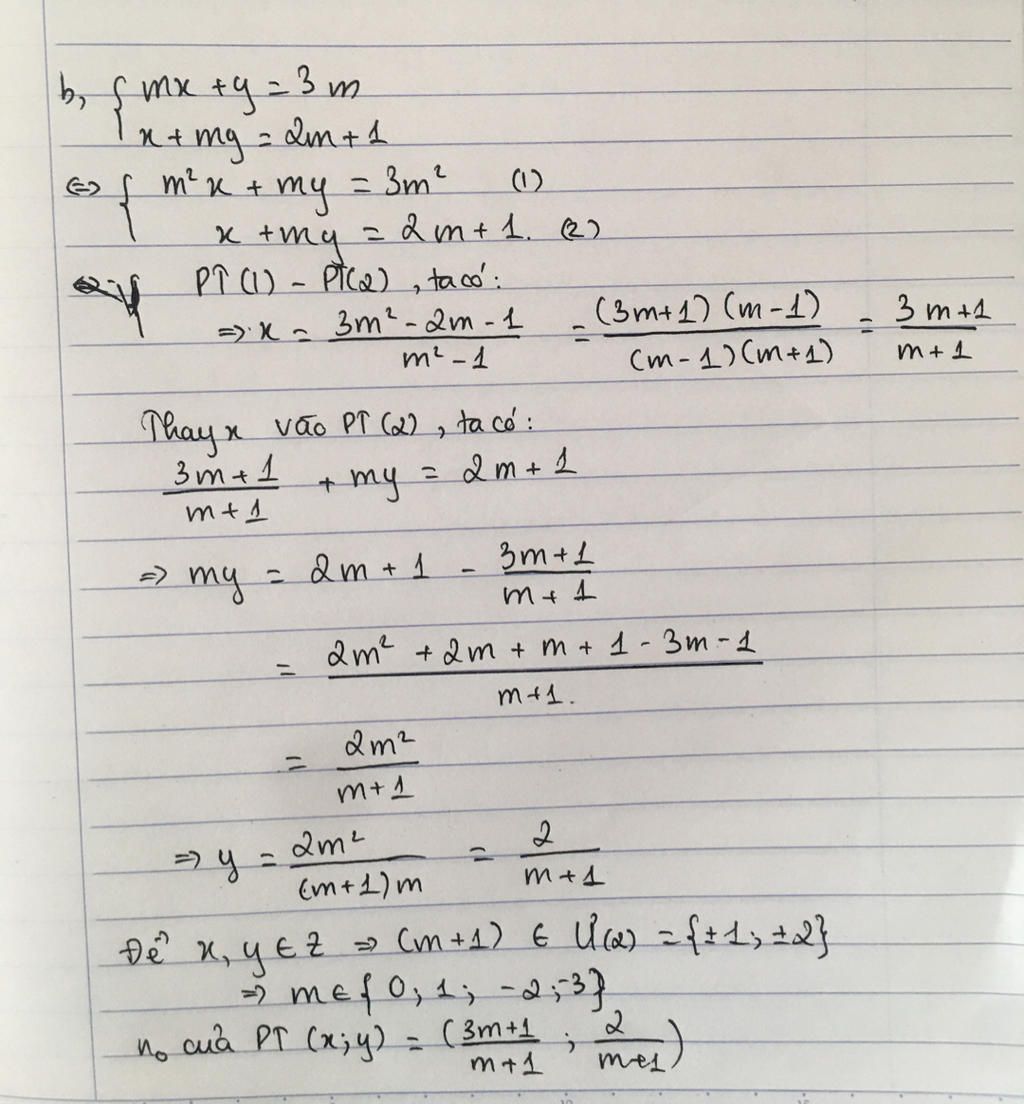 b, { mx + y = 3m
x + my = 2m + 1
⇔ { m²x + my = 3m² (1)
x + my = 2m + 1. (2)
PT(1) - PT(2), ta có:
⇒ x = \frac{3m² - 2m - 1}{m² - 1} = \frac{(3m+1)(m-1)}{(m-1)(m+1)} = \frac{3m+1}{m+1}
Thay x vào PT(2), ta có:
\frac{3m+1}{m+1} + my = 2m + 1
⇒ my = 2m + 1 - \frac{3m+1}{m+1}
= \frac{2m² + 2m + m + 1 - 3m - 1}{m+1.}
= \frac{2m²}{m+1}
⇒ y = \frac{2m²}{(m+1)m} = \frac{2}{m+1}
Để x, y ∈ Z ⇒ (m+1) ∈ Ư(2) = {±1; ±2}
⇒ m ∈ { 0; 1; -2; -3}
n₀ của PT (x;y) = (\frac{3m+1}{m+1}; \frac{2}{m+1})